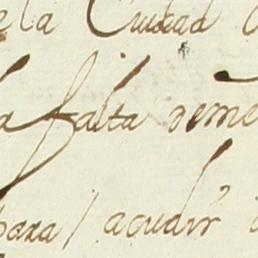 de la Ciudad
la falta deme
para acudir